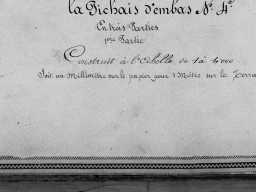 la Pichais d'embas N.º 4ᵉ
En trois Parties
1ʳᵉ Partie
Construit à l'Echelle de 1 à 1000
Soit un Millimètre sur le papier pour 1 Mètre sur le Terra